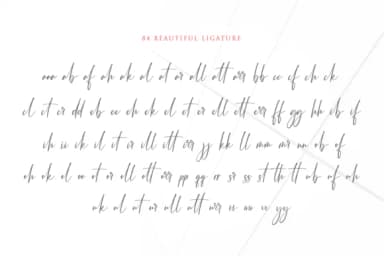 84 BEAUTIFUL LIGATURE
aa ab af ah ak al at ar all att arr bb cc cf ch ck
cl ct cr dd eb ee eh ek el et er ell ett err ff gg hh ib if
ih ii ik il it ir ill itt irr jj kk ll mm nn ob of
oh ok ol oo ot or oll ott orr pp qq rr sr ss st th tt ub uf uh
uk ul ut ur ull utt urr vv uu yy